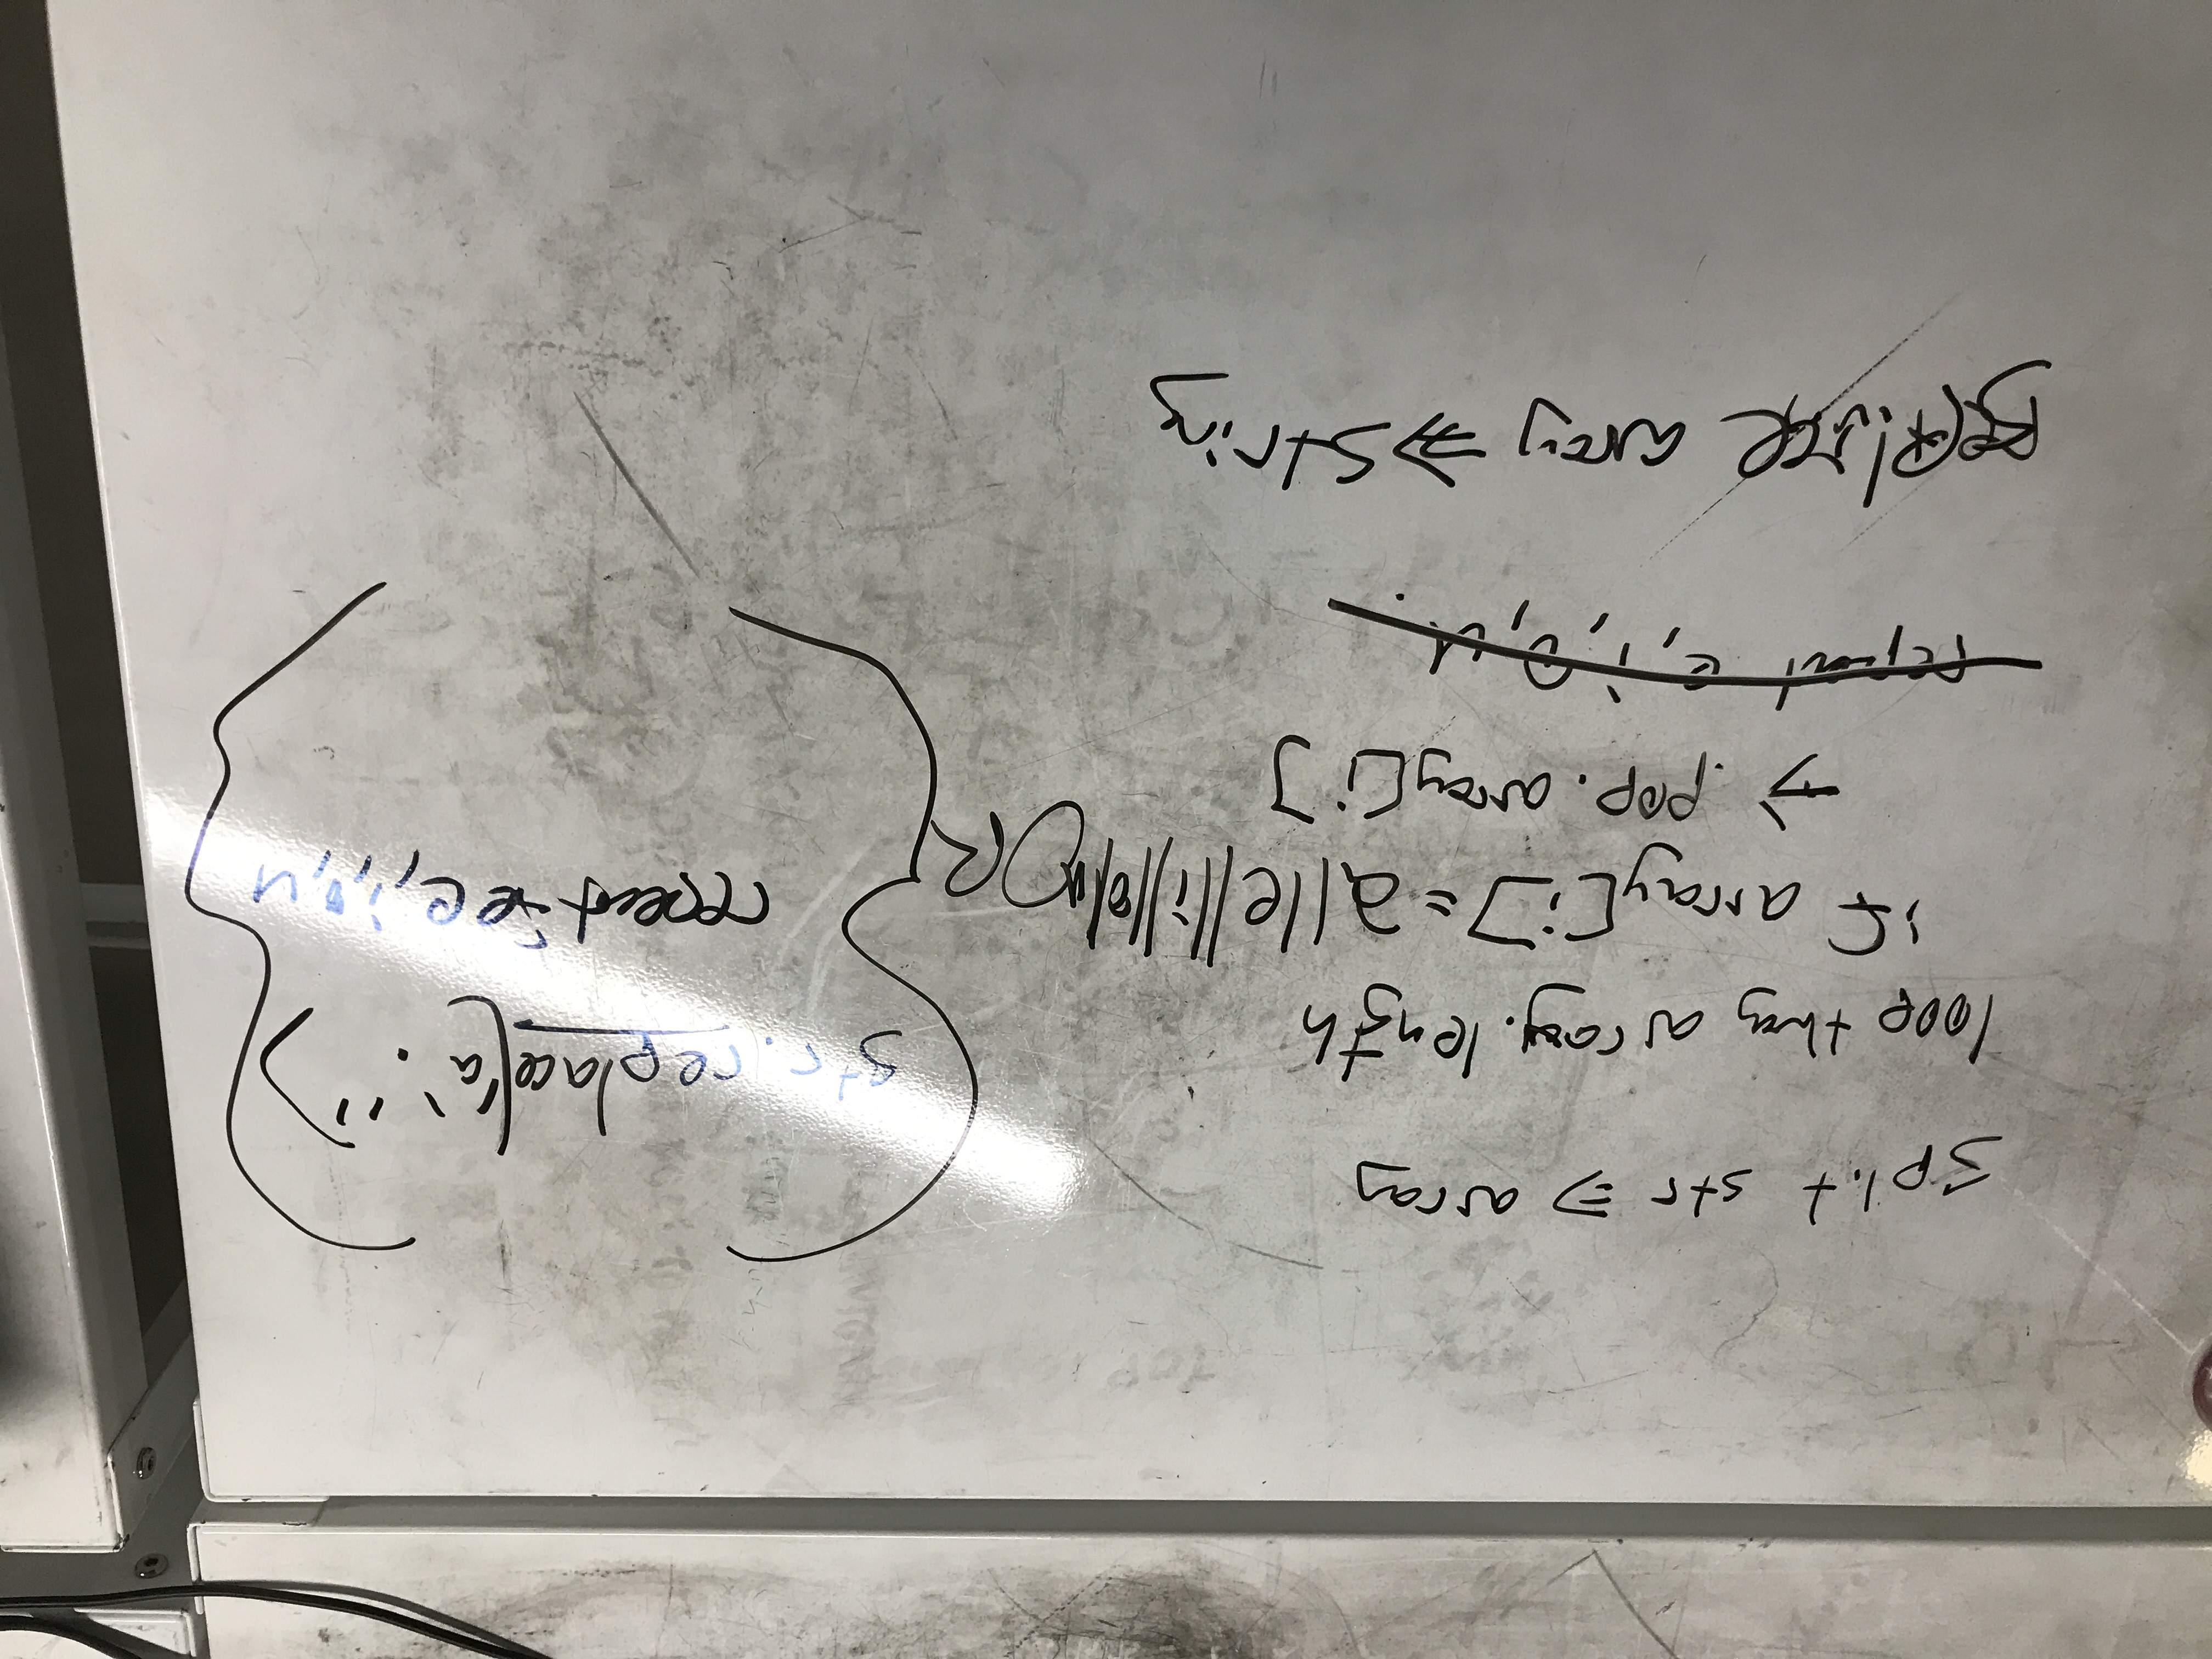 split str => array
loop thru array.length
if array[i] = a||e||i||o||u OR
→ .pop.array[i]
array => string
str.replace('a', '')
repeat for e, i, o, u